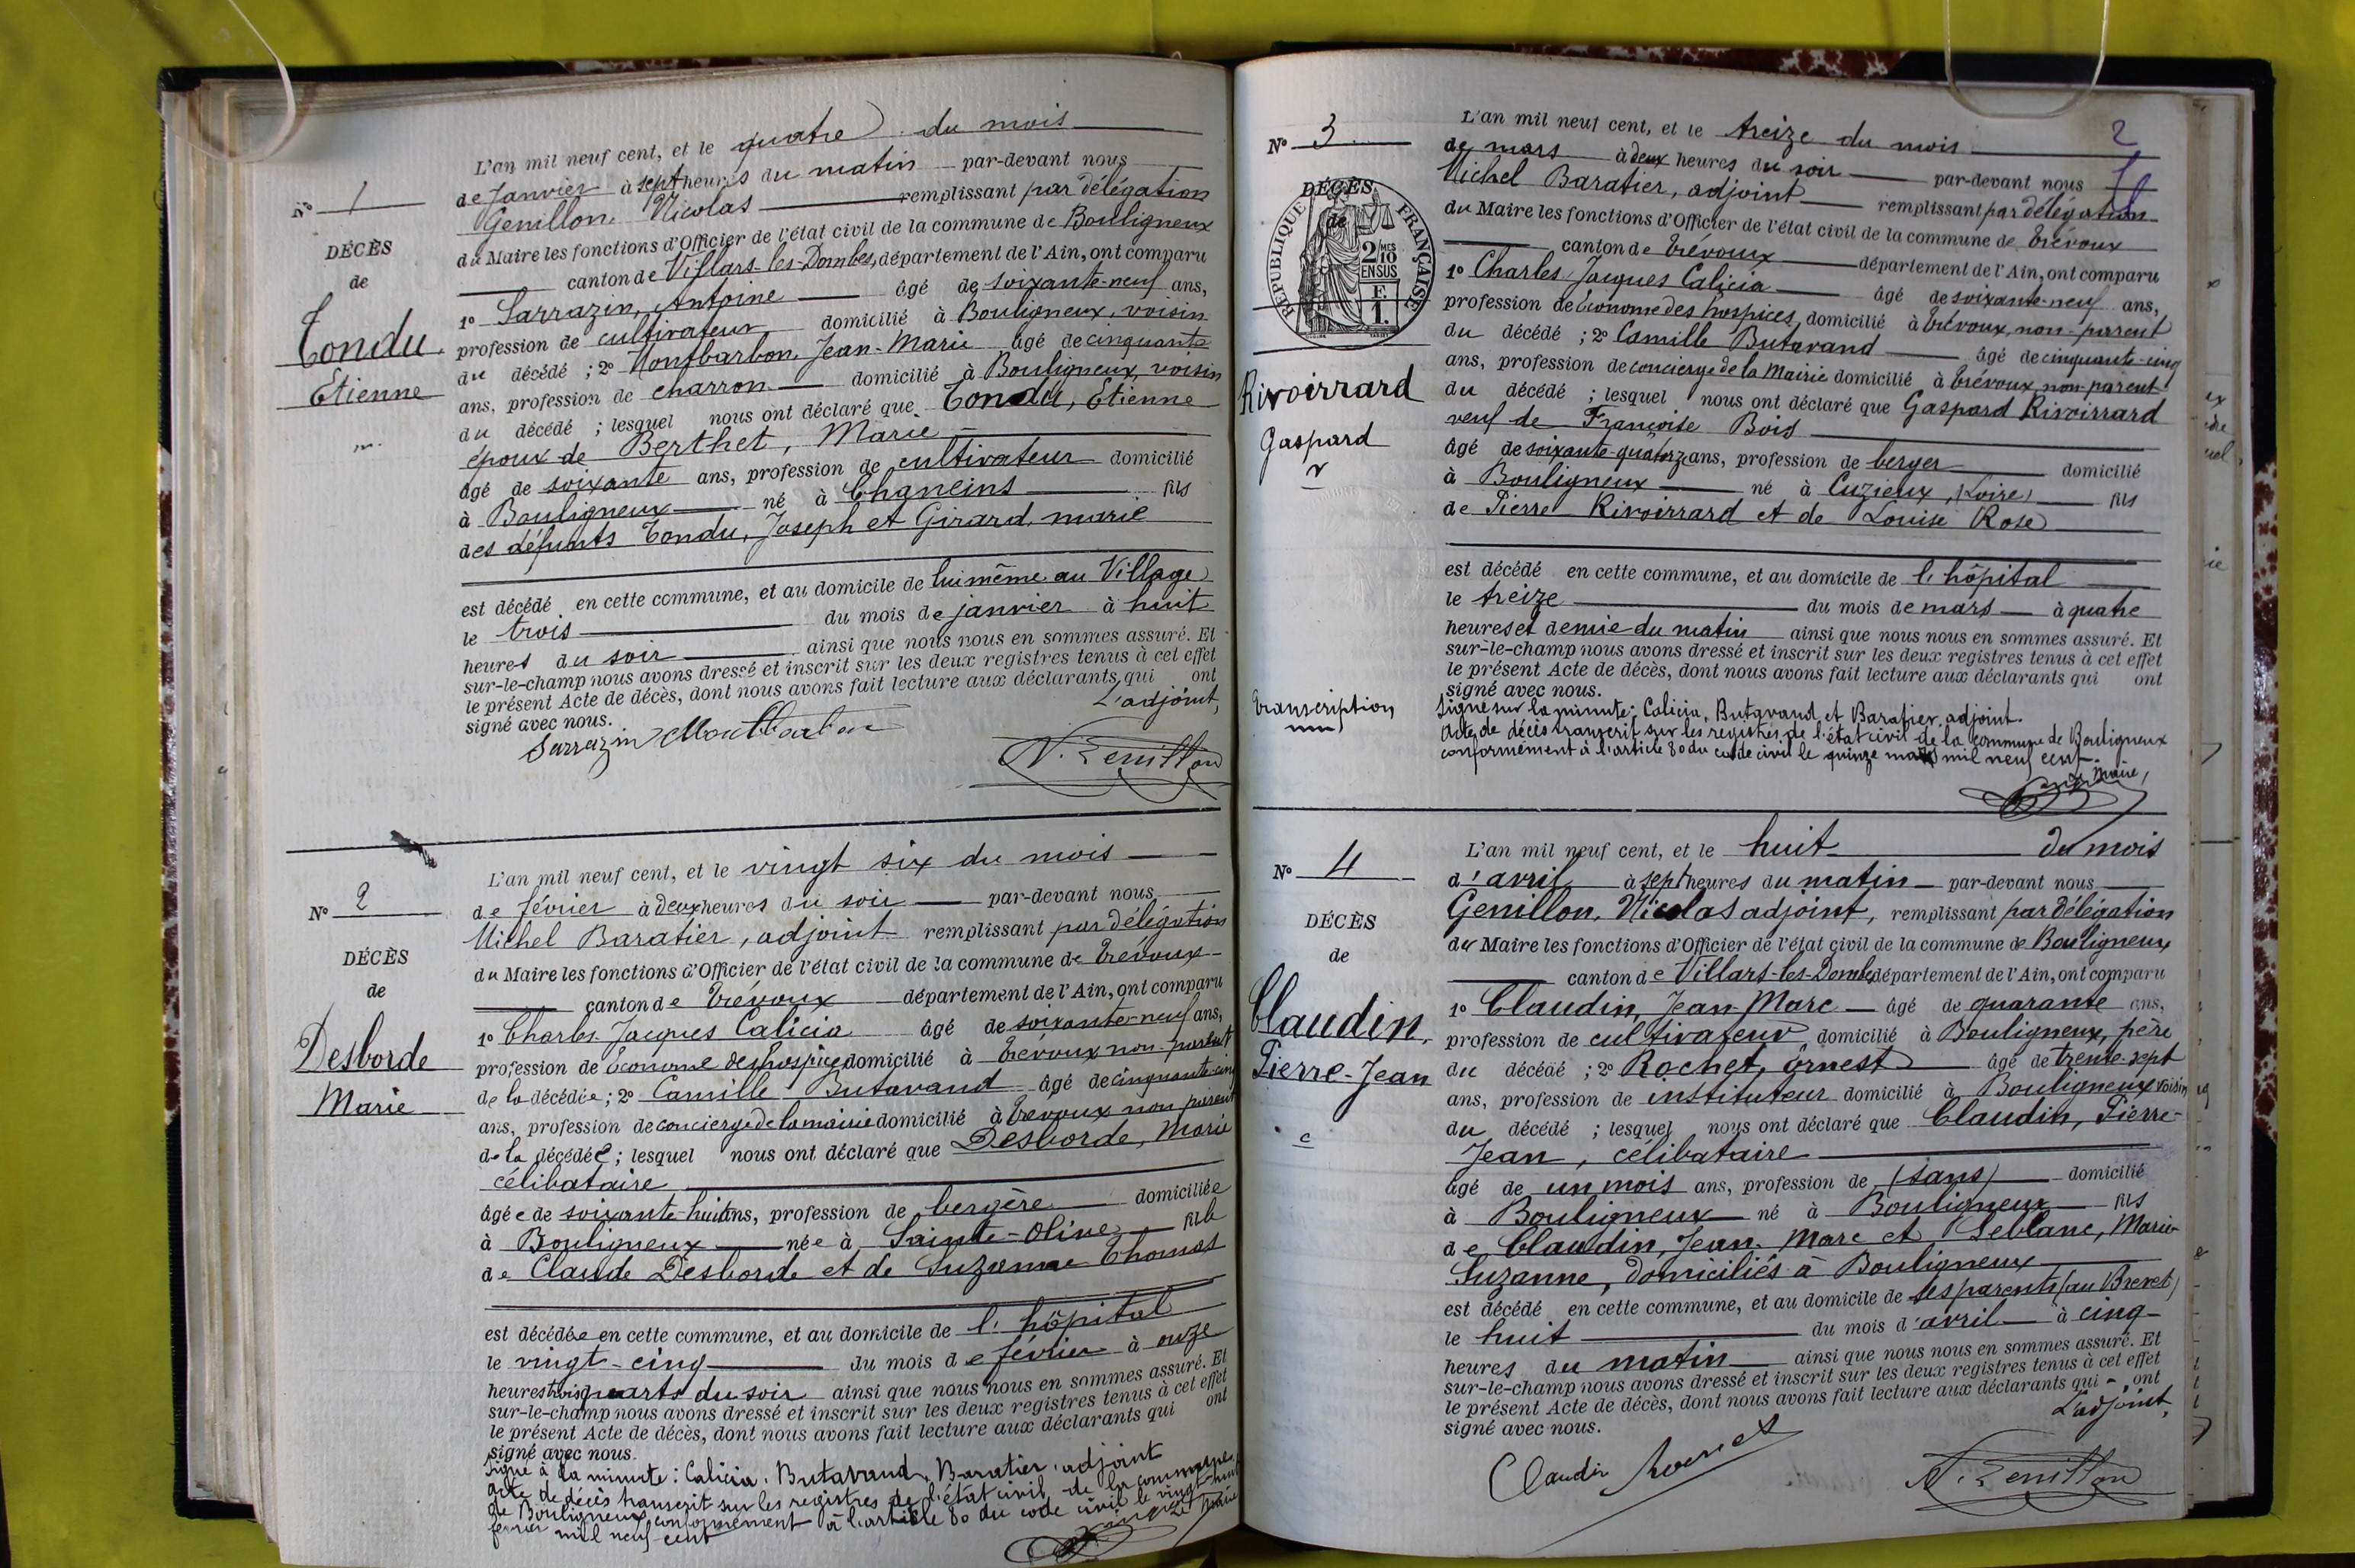 L'an mil neuf cent, et le quatre du mois
de Janvier à sept heures du matin par-devant nous
Genillon Nicolas remplissant par délégation
du Maire les fonctions d'Officier de l'état civil de la commune de Bouligneux
canton de Villars-les-Dombes, département de l'Ain, ont comparu
1º Sarrazin, Antoine âgé de soixante-neuf ans,
profession de cultivateur, domicilié à Bouligneux, voisin
du décédé ; 2º Montbarbon, Jean-Marie âgé de cinquante
ans, profession de charron domicilié à Bouligneux, voisin
du décédé ; lesquel nous ont déclaré que Tondu, Etienne
époux de Berthet, Marie
âgé de soixante ans, profession de cultivateur domicilié
à Bouligneux né à Chaneins fils
des défunts Tondu, Joseph et Girard, marie
est décédé en cette commune, et au domicile de lui même au Village
le trois du mois de janvier à huit
heures du soir ainsi que nous nous en sommes assuré. Et
sur-le-champ nous avons dressé et inscrit sur les deux registres tenus à cet effet
le présent Acte de décès, dont nous avons fait lecture aux déclarants, qui ont
signé avec nous. L'adjoint,
Sarrazin Montbarbon
N. Genillon
Nº 1
DÉCÈS
de
Tondu
Etienne
Nº 2
DÉCÈS
de
Desborde
Marie
L'an mil neuf cent, et le vingt six du mois
de février à deux heures du soir par-devant nous
Michel Baratier, adjoint remplissant par délégation
du Maire les fonctions d'Officier de l'état civil de la commune de Trévoux
canton de Trévoux département de l'Ain, ont comparu
1º Charles Jacques Calicia âgé de soixante-neuf ans,
profession de Econome des hospices domicilié à Trévoux non-parent
de la décédée ; 2º Camille Butavand âgé de cinquante-cinq
ans, profession de concierge de la mairie domicilié à Trévoux non parent
de la décédée ; lesquel nous ont déclaré que Desborde, Marie
célibataire
âgée de soixante-huit ans, profession de bergère domiciliée
à Bouligneux née à Sainte-Olive fille
de Claude Desborde et de Suzanne Thomas
est décédée en cette commune, et au domicile de l'hôpital
le vingt-cinq du mois de février à onze
heures trois quarts du soir ainsi que nous nous en sommes assuré. Et
sur-le-champ nous avons dressé et inscrit sur les deux registres tenus à cet effet
le présent Acte de décès, dont nous avons fait lecture aux déclarants qui ont
signé avec nous.
Signé à la minute : Calicia, Butavand, Baratier, adjoint
acte de décès transcrit sur les registres de l'état civil de la commune
de Bouligneux conformément à l'article 80 du code civil le vingt-huit
février mil neuf cent Le Maire
2
Nº 3
DÉCÈS
de
RÉPUBLIQUE FRANÇAISE
2 MES
10
EN SUS
F.
1.
Rivoirrard
Gaspard
transcription
L'an mil neuf cent, et le treize du mois
de mars à deux heures du soir par-devant nous
Michel Baratier, adjoint remplissant par délégation
du Maire les fonctions d'Officier de l'état civil de la commune de Trévoux
canton de Trévoux département de l'Ain, ont comparu
1º Charles Jacques Calicia âgé de soixante-neuf ans,
profession de économe des hospices domicilié à Trévoux, non-parent
du décédé ; 2º Camille Butavand âgé de cinquante-cinq
ans, profession de concierge de la Mairie domicilié à Trévoux non-parent
du décédé ; lesquel nous ont déclaré que Gaspard Rivoirrard
veuf de Françoise Bois
âgé de soixante-quatorze ans, profession de berger domicilié
à Bouligneux né à Cuzieux, (Loire) fils
de Pierre Rivoirrard et de Louise Rose
est décédé en cette commune, et au domicile de l'hôpital
le treize du mois de mars à quatre
heures et demie du matin ainsi que nous nous en sommes assuré. Et
sur-le-champ nous avons dressé et inscrit sur les deux registres tenus à cet effet
le présent Acte de décès, dont nous avons fait lecture aux déclarants qui ont
signé avec nous.
Signé sur la minute : Calicia, Butavand et Baratier, adjoint.
Acte de décès transcrit sur les registres de l'état civil de la commune de Bouligneux
conformément à l'article 80 du code civil le quinze mars mil neuf cent.
Le Maire,
Nº 4
DÉCÈS
de
Claudin,
Pierre-Jean
L'an mil neuf cent, et le huit du mois
d'avril à sept heures du matin par-devant nous
Genillon, Nicolas adjoint, remplissant par délégation
du Maire les fonctions d'Officier de l'état civil de la commune de Bouligneux
canton de Villars-les-Dombes département de l'Ain, ont comparu
1º Claudin, Jean Marc âgé de quarante ans,
profession de cultivateur domicilié à Bouligneux, père
du décédé ; 2º Rochet, Ernest âgé de trente-sept
ans, profession de instituteur domicilié à Bouligneux voisin
du décédé ; lesquel nous ont déclaré que Claudin, Pierre-
Jean, célibataire
âgé de un mois ans, profession de (sans) domicilié
à Bouligneux né à Bouligneux fils
de Claudin, Jean Marc et Leblanc, Marie
Suzanne, domiciliés à Bouligneux
est décédé en cette commune, et au domicile de ses parents (au Brevet)
le huit du mois d'avril à cinq
heures du matin ainsi que nous nous en sommes assuré. Et
sur-le-champ nous avons dressé et inscrit sur les deux registres tenus à cet effet
le présent Acte de décès, dont nous avons fait lecture aux déclarants qui ont
signé avec nous. L'adjoint,
Claudin Rochet
N. Genillon